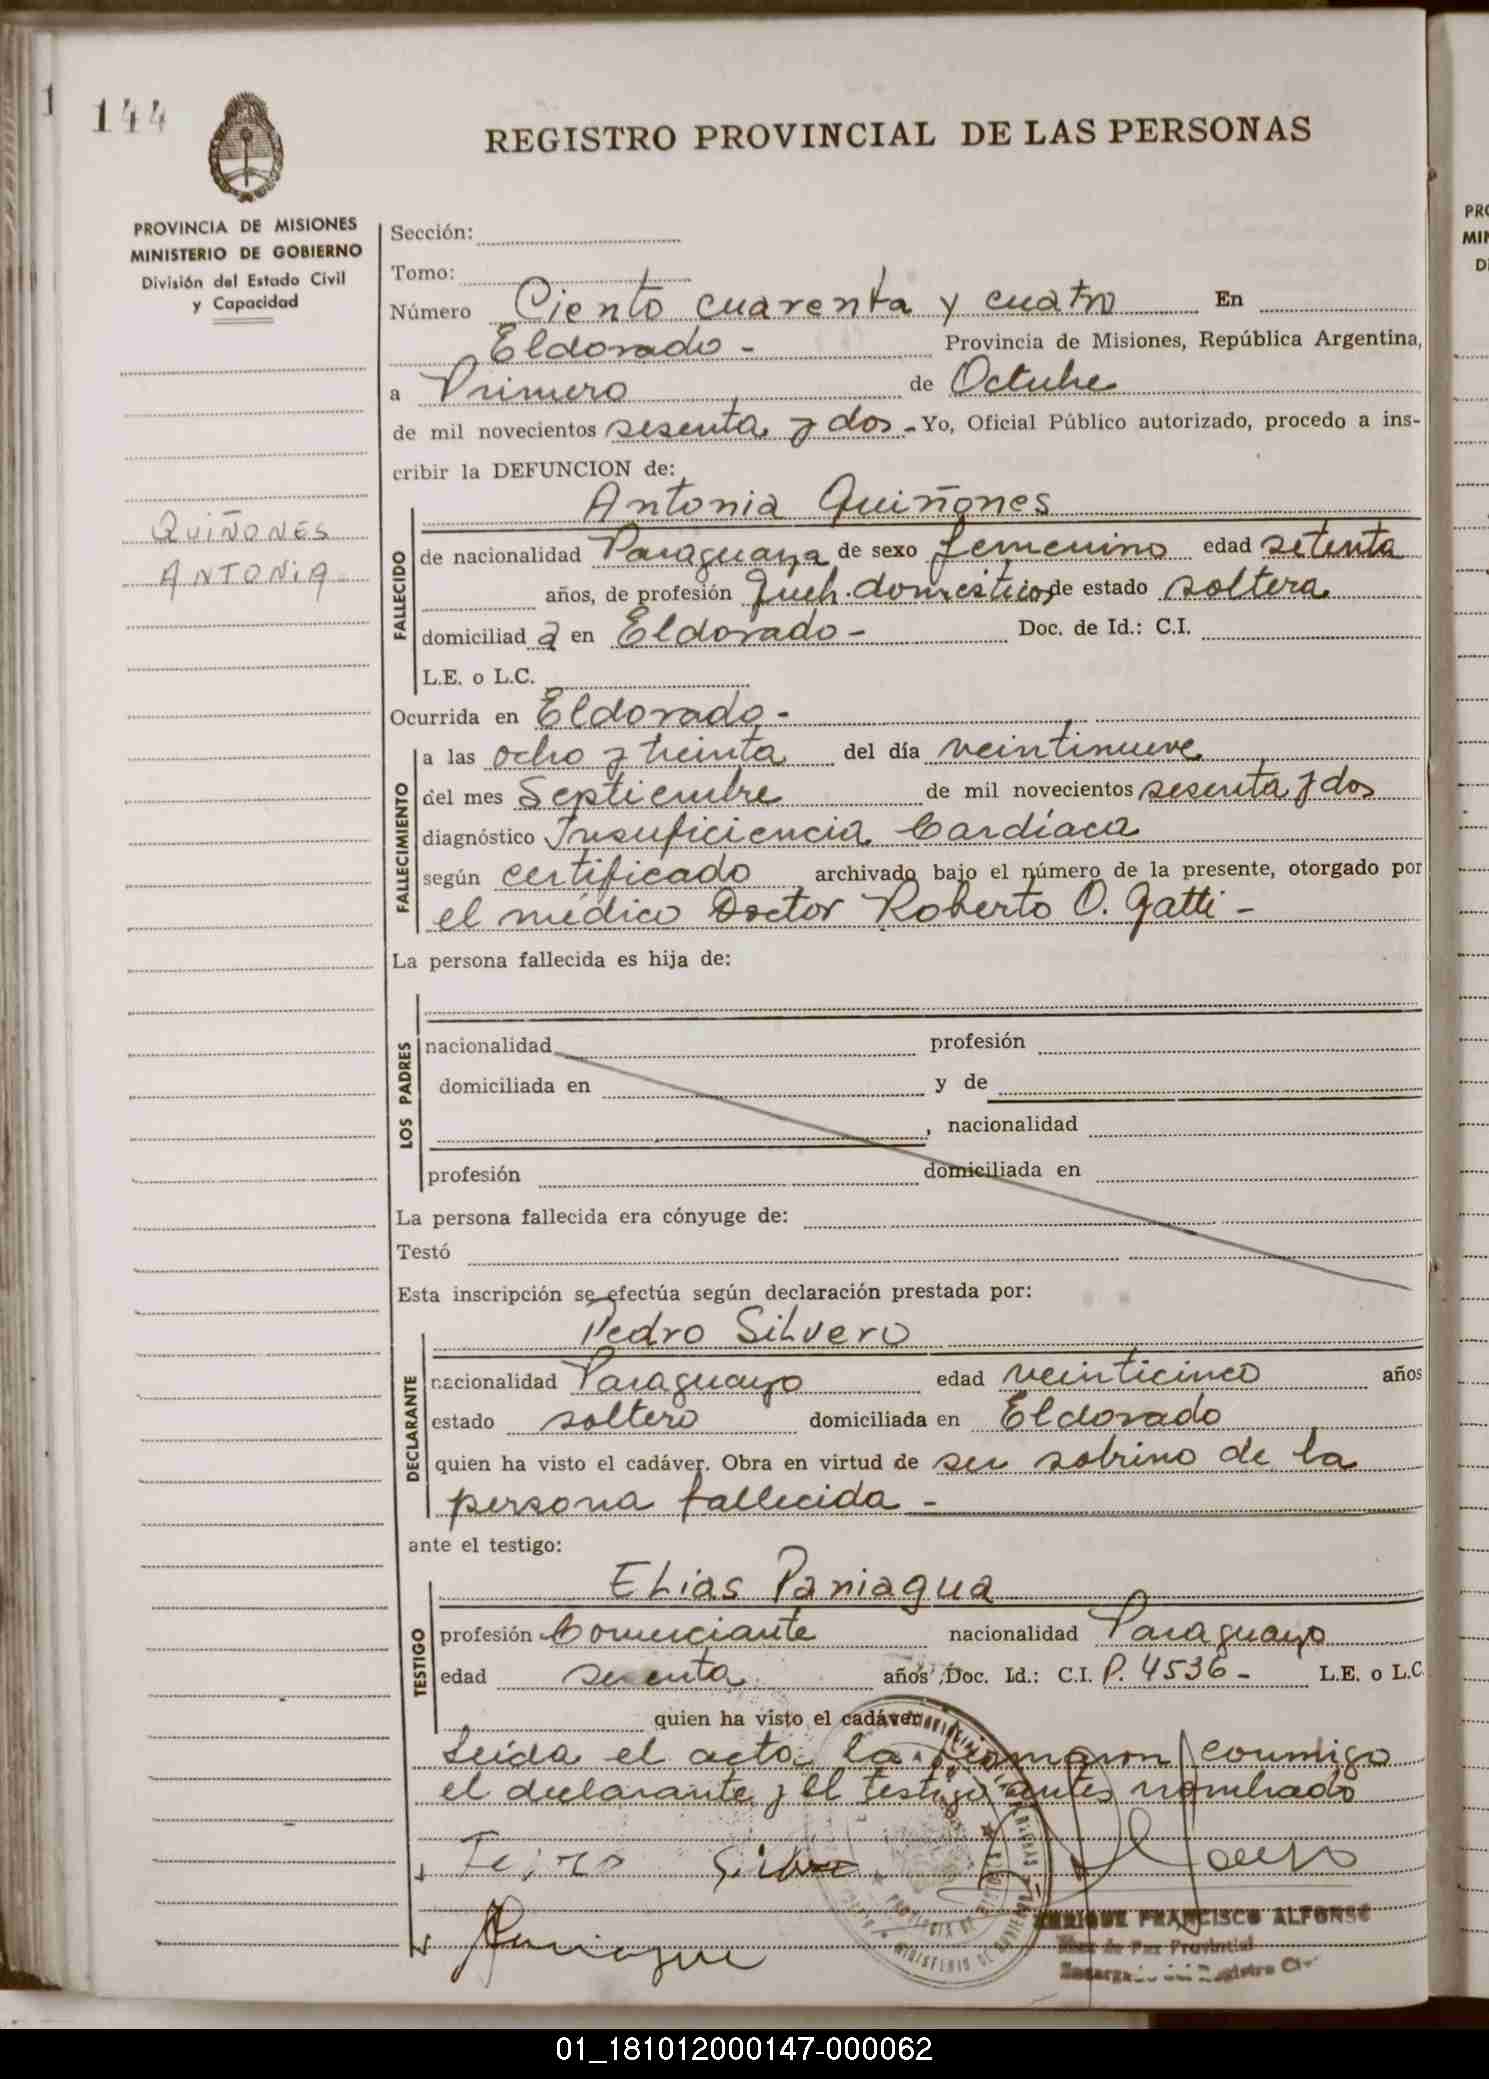 1
144
REGISTRO PROVINCIAL DE LAS PERSONAS
PROVINCIA DE MISIONES
MINISTERIO DE GOBIERNO
División del Estado Civil
y Capacidad
Sección:
Tomo:
Número Ciento cuarenta y cuatro En
Eldorado - Provincia de Misiones, República Argentina,
a Primero de Octubre
de mil novecientos sesenta y dos - Yo, Oficial Público autorizado, procedo a ins-
cribir la DEFUNCION de:
Antonia Quiñones
QUIÑONES
ANTONIA
FALLECIDO
de nacionalidad Paraguaya de sexo femenino edad setenta
años, de profesión Queh. domésticos de estado soltera
domiciliad a en Eldorado - Doc. de Id.: C.I.
L.E. o L.C.
Ocurrida en Eldorado -
FALLECIMIENTO
a las ocho y treinta del día veintinueve
del mes Septiembre de mil novecientos sesenta y dos
diagnóstico Insuficiencia Cardíaca
según certificado archivado bajo el número de la presente, otorgado por
el médico Doctor Roberto O. Gatti -
La persona fallecida es hija de:
LOS PADRES
nacionalidad profesión
domiciliada en y de
, nacionalidad
profesión domiciliada en
La persona fallecida era cónyuge de:
Testó
Esta inscripción se efectúa según declaración prestada por:
Pedro Silvero
DECLARANTE
nacionalidad Paraguayo edad veinticinco años
estado soltero domiciliada en Eldorado
quien ha visto el cadáver. Obra en virtud de ser sobrino de la
persona fallecida -
ante el testigo:
Elias Paniagua
TESTIGO
profesión Comerciante nacionalidad Paraguayo
edad años, Doc. Id.: C.I. P. 4536 - L.E. o L.C.
quien ha visto el cadáver
Leída el acta, la firmaron conmigo
el declarante y el testigo antes nombrado
ENRIQUE FRANCISCO ALFONSO
Juez de Paz Provincial
Registro Civil
PRO
MIN
D
01_181012000147-000062